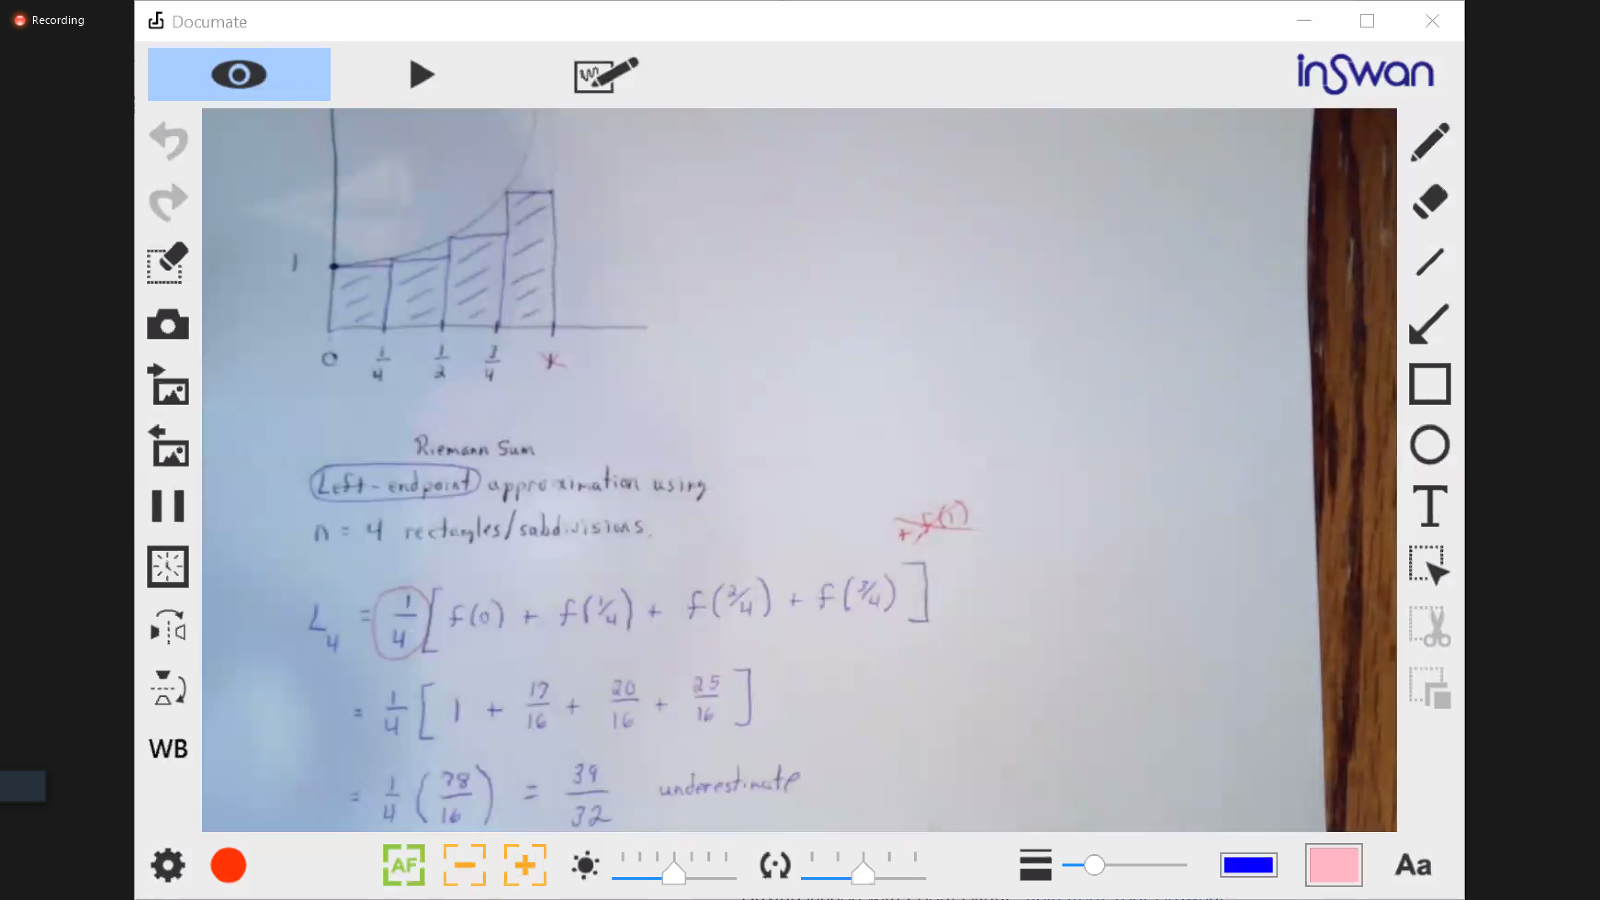 Recording
Documate
inSwan
1
0 1/4 1/2 3/4 1
Riemann Sum
Left-endpoint approximation using
n = 4 rectangles/subdivisions.
+ f(1)
L₄ = 1/4 [ f(0) + f(1/4) + f(2/4) + f(3/4) ]
= 1/4 [ 1 + 17/16 + 20/16 + 25/16 ]
= 1/4 ( 78/16 ) = 39/32 underestimate
WB
T
AF
Aa